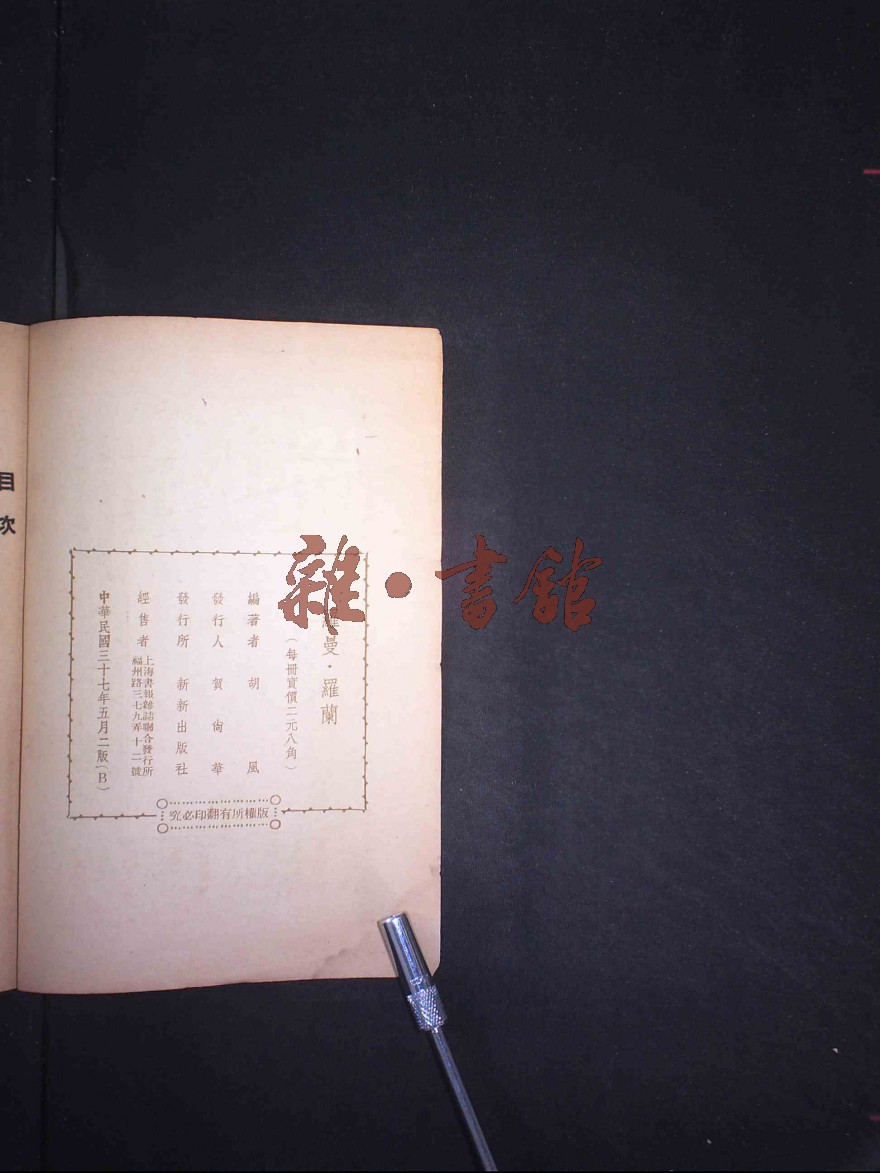 雜・書館
羅曼・羅蘭
(每冊實價二元八角)
編著者 胡風
發行人 賀尙華
發行所 新新出版社
經售者 上海書報雜誌聯合發行所
福州路三七九弄十二號
中華民國三十七年五月二版(B)
版權所有翻印必究
目次